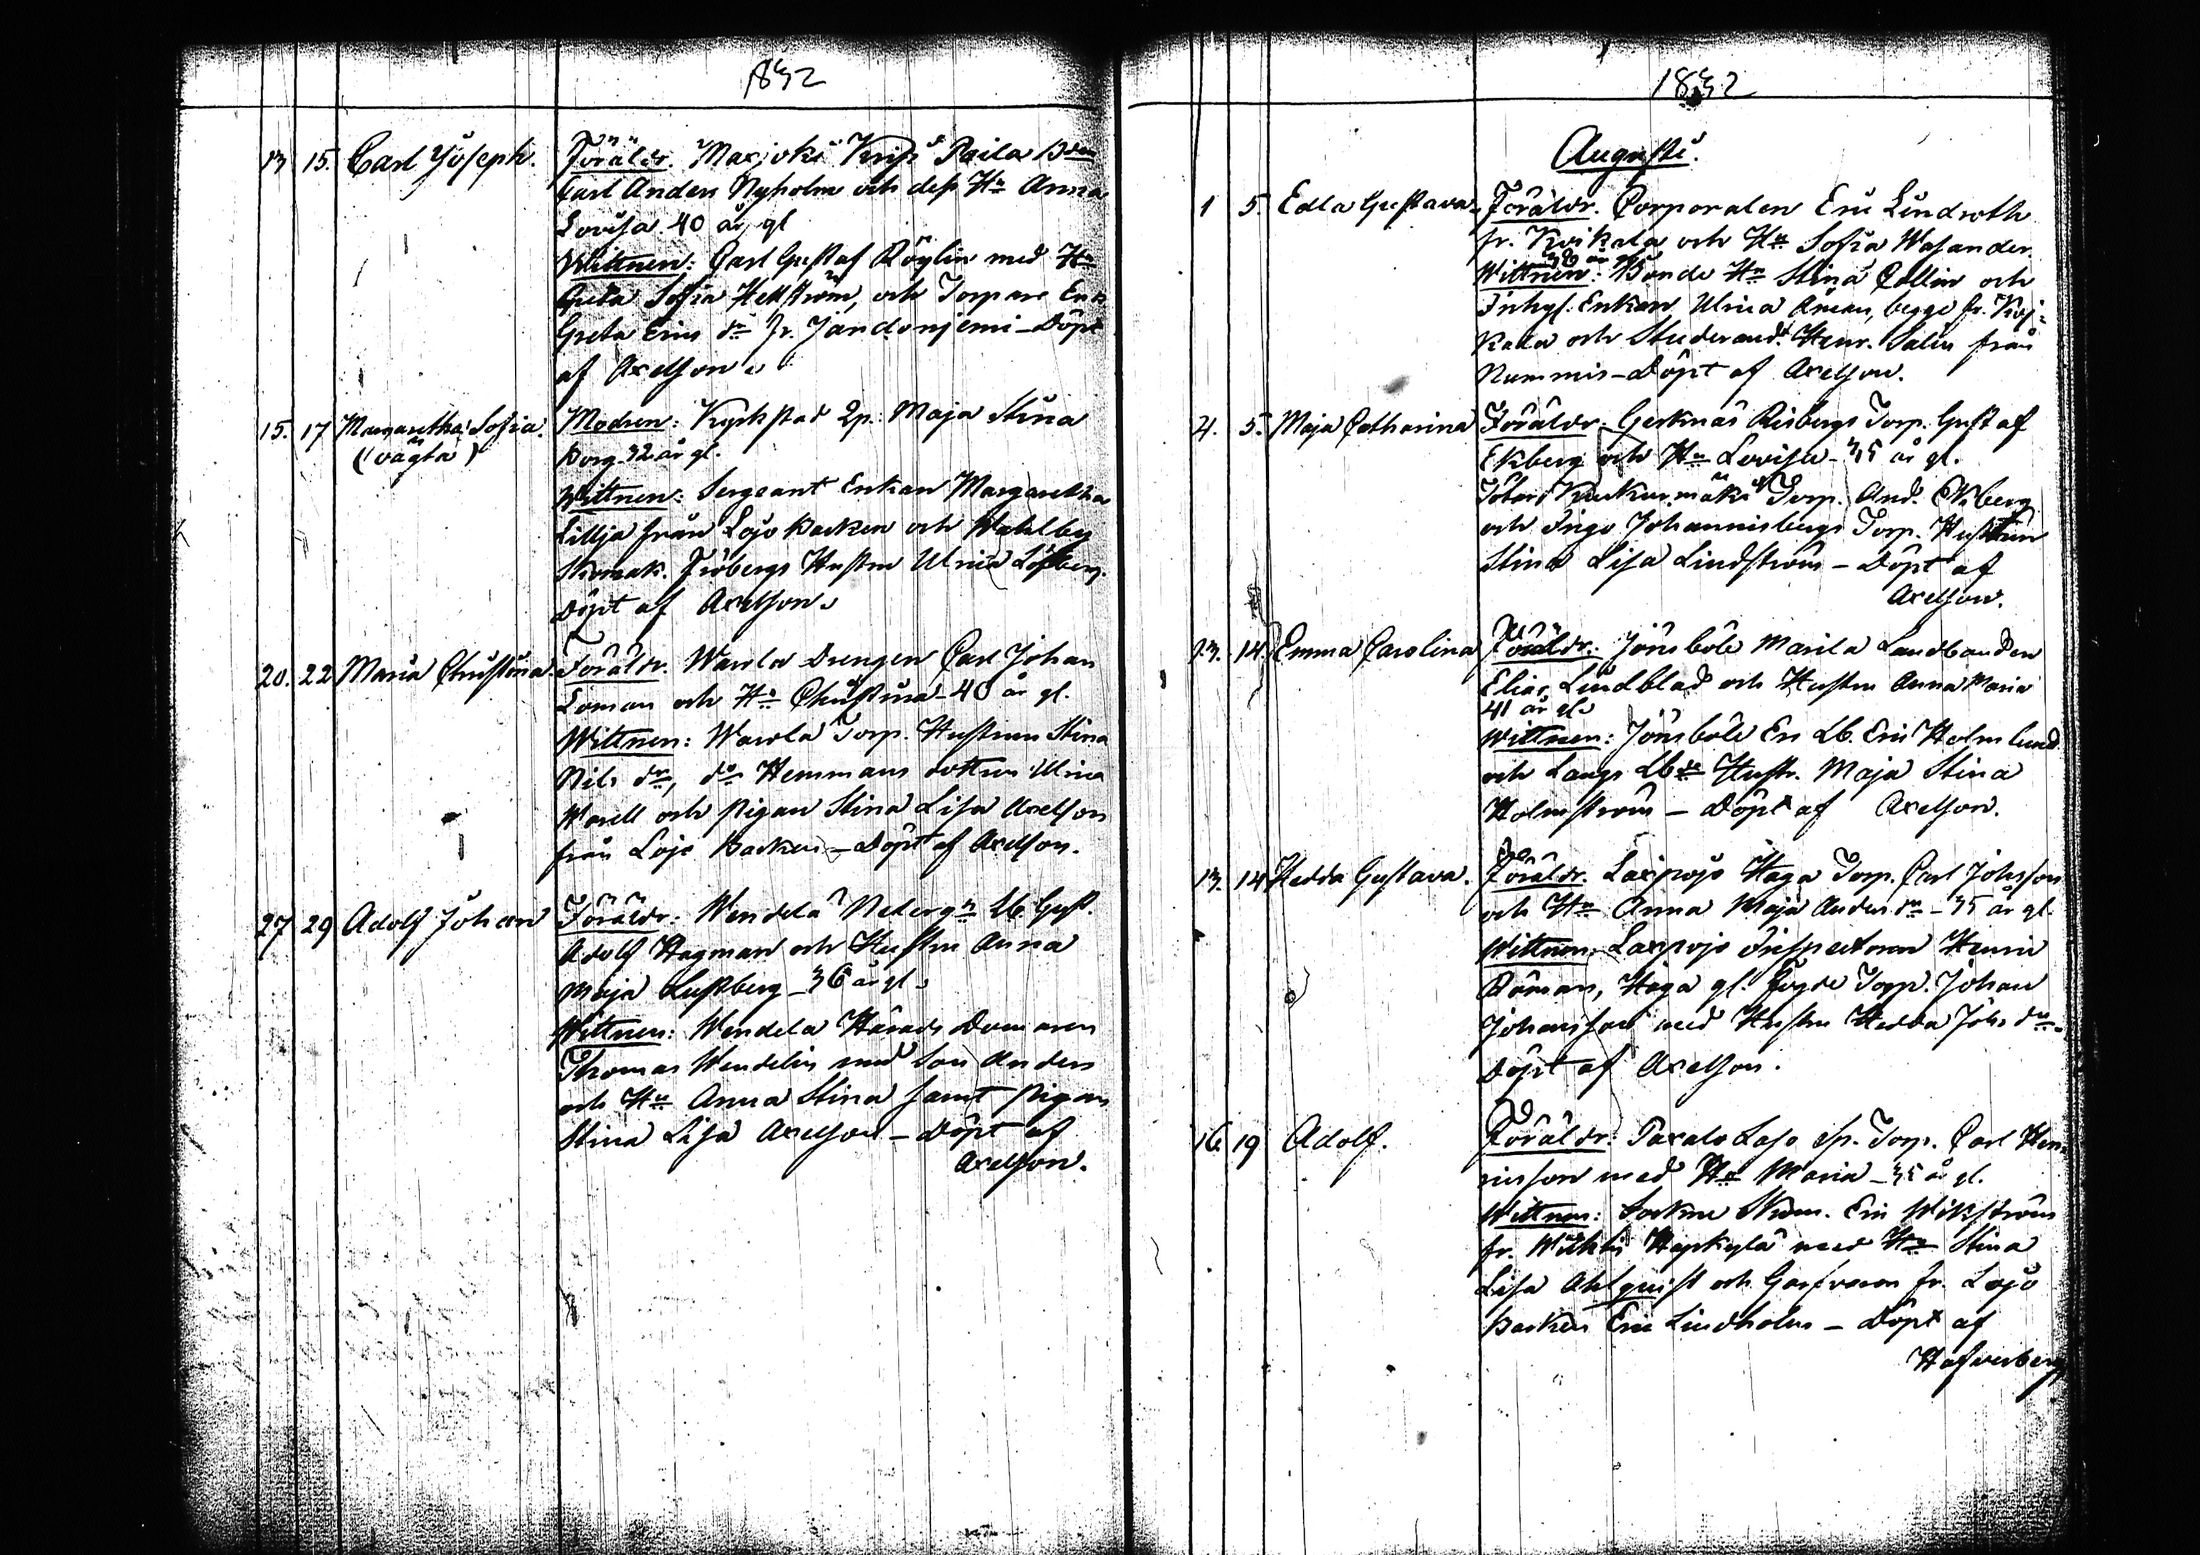 1832
13 15. Carl Joseph. Föräldr. Marjoki Krips Paila Bdn
Carl Anders Nyholm och dess Hu Anna
Lovisa 40 år gl
Wittnen: Carl Gustaf Röglin med Hu
Greta Sofia Hellström, och Torpare Enk
Greta Erics dr fr. Jandonjemi - Döpt
af Axelson.
15. 17 Margaretha Sofia. Modren: Kyrkstad Qp. Maja Stina
(oägta) Borg 32 år gl.
Wittnen: Sergeant Enkan Margaretha
Lillja från Lojo Backen och Wahlby
Skomak. Fröbergs Hustru Ulrica Löfberg.
Döpt af Axelson.
20. 22 Maria Christina. Föräldr. Warola Drengen Carl Johan
Loman och Hu Christina - 40 år gl.
Wittnen: Warola Torp. Hustrun Stina
Nils dr, do Hemmans dottren Ulrica
Warell och Pigan Stina Lisa Axelson
från Lojo Backen - Döpt af Axelson.
27 29 Adolf Johan Föräldr: Wendelä Nederg. Lb Gust.
Adolf Hagman och Hustru Anna
Maja Lustberg - 36 år gl.
Wittnen: Wendela Härads Domaren
Thomas Wendelin med Son Anders
och Hu Anna Stina samt Pigan
Stina Lisa Axelson - Döpt af
Axelson.
1832
Augusti.
1 5. Edla Gustava. Föräldr. Corporalen Eric Lindroth
fr. Koikala och Hu Sofia Wasander
39 år
Wittnen: Bonde Hu Stina Collin och
Inhys. Enkan Ulrica Åman, begge fr. Koi-
kala och Studerand. Henr. Salin från
Nummis - Döpt af Axelson.
4. 5. Maja Catharina Föräldr: Gerknäs Risbergs Torp. Gustaf
Ekberg och Hu Lovisa - 35 år gl.
Torp. And. Ekberg
och Ingo Johannisbergs Torp. Hustrun
Stina Lisa Lindström - Döpt af
Axelson.
13. 14. Emma Carolina Föräldr: Jönsböle Marila Landbonden
Elias Lindblad och Hustru Anna Maria
41 år gl.
Wittnen: Jönsböle Ers Lb. Eric Holmlund
och Langs Lb Hustr. Maja Stina
Holmström - Döpt af Axelson.
13. 14 Hedda Gustava. Föräldr. Laxpojo Haga Torp. Carl Johsson
och Hu Anna Maja Anders dr - 35 år gl.
Wittnen: Laxpojo Inspectoren Henric
Böman, Haga gl. Fogde Torp. Johan
Johansson med Hustru Hedda Johs dr.
Döpt af Axelson.
16. 19 Adolf. Föräldr: Paxalo Laso Torp. Carl Hen-
ricsson med Hu Maria - 35 år gl.
Wittnen: Sockne Skom. Eric Wikström
fr. Hapkylä med Hu Stina
Lisa Ahlquist och Garfvaren fr. Lojo
Backen Eric Lindholm - Döpt af
Hafverberg